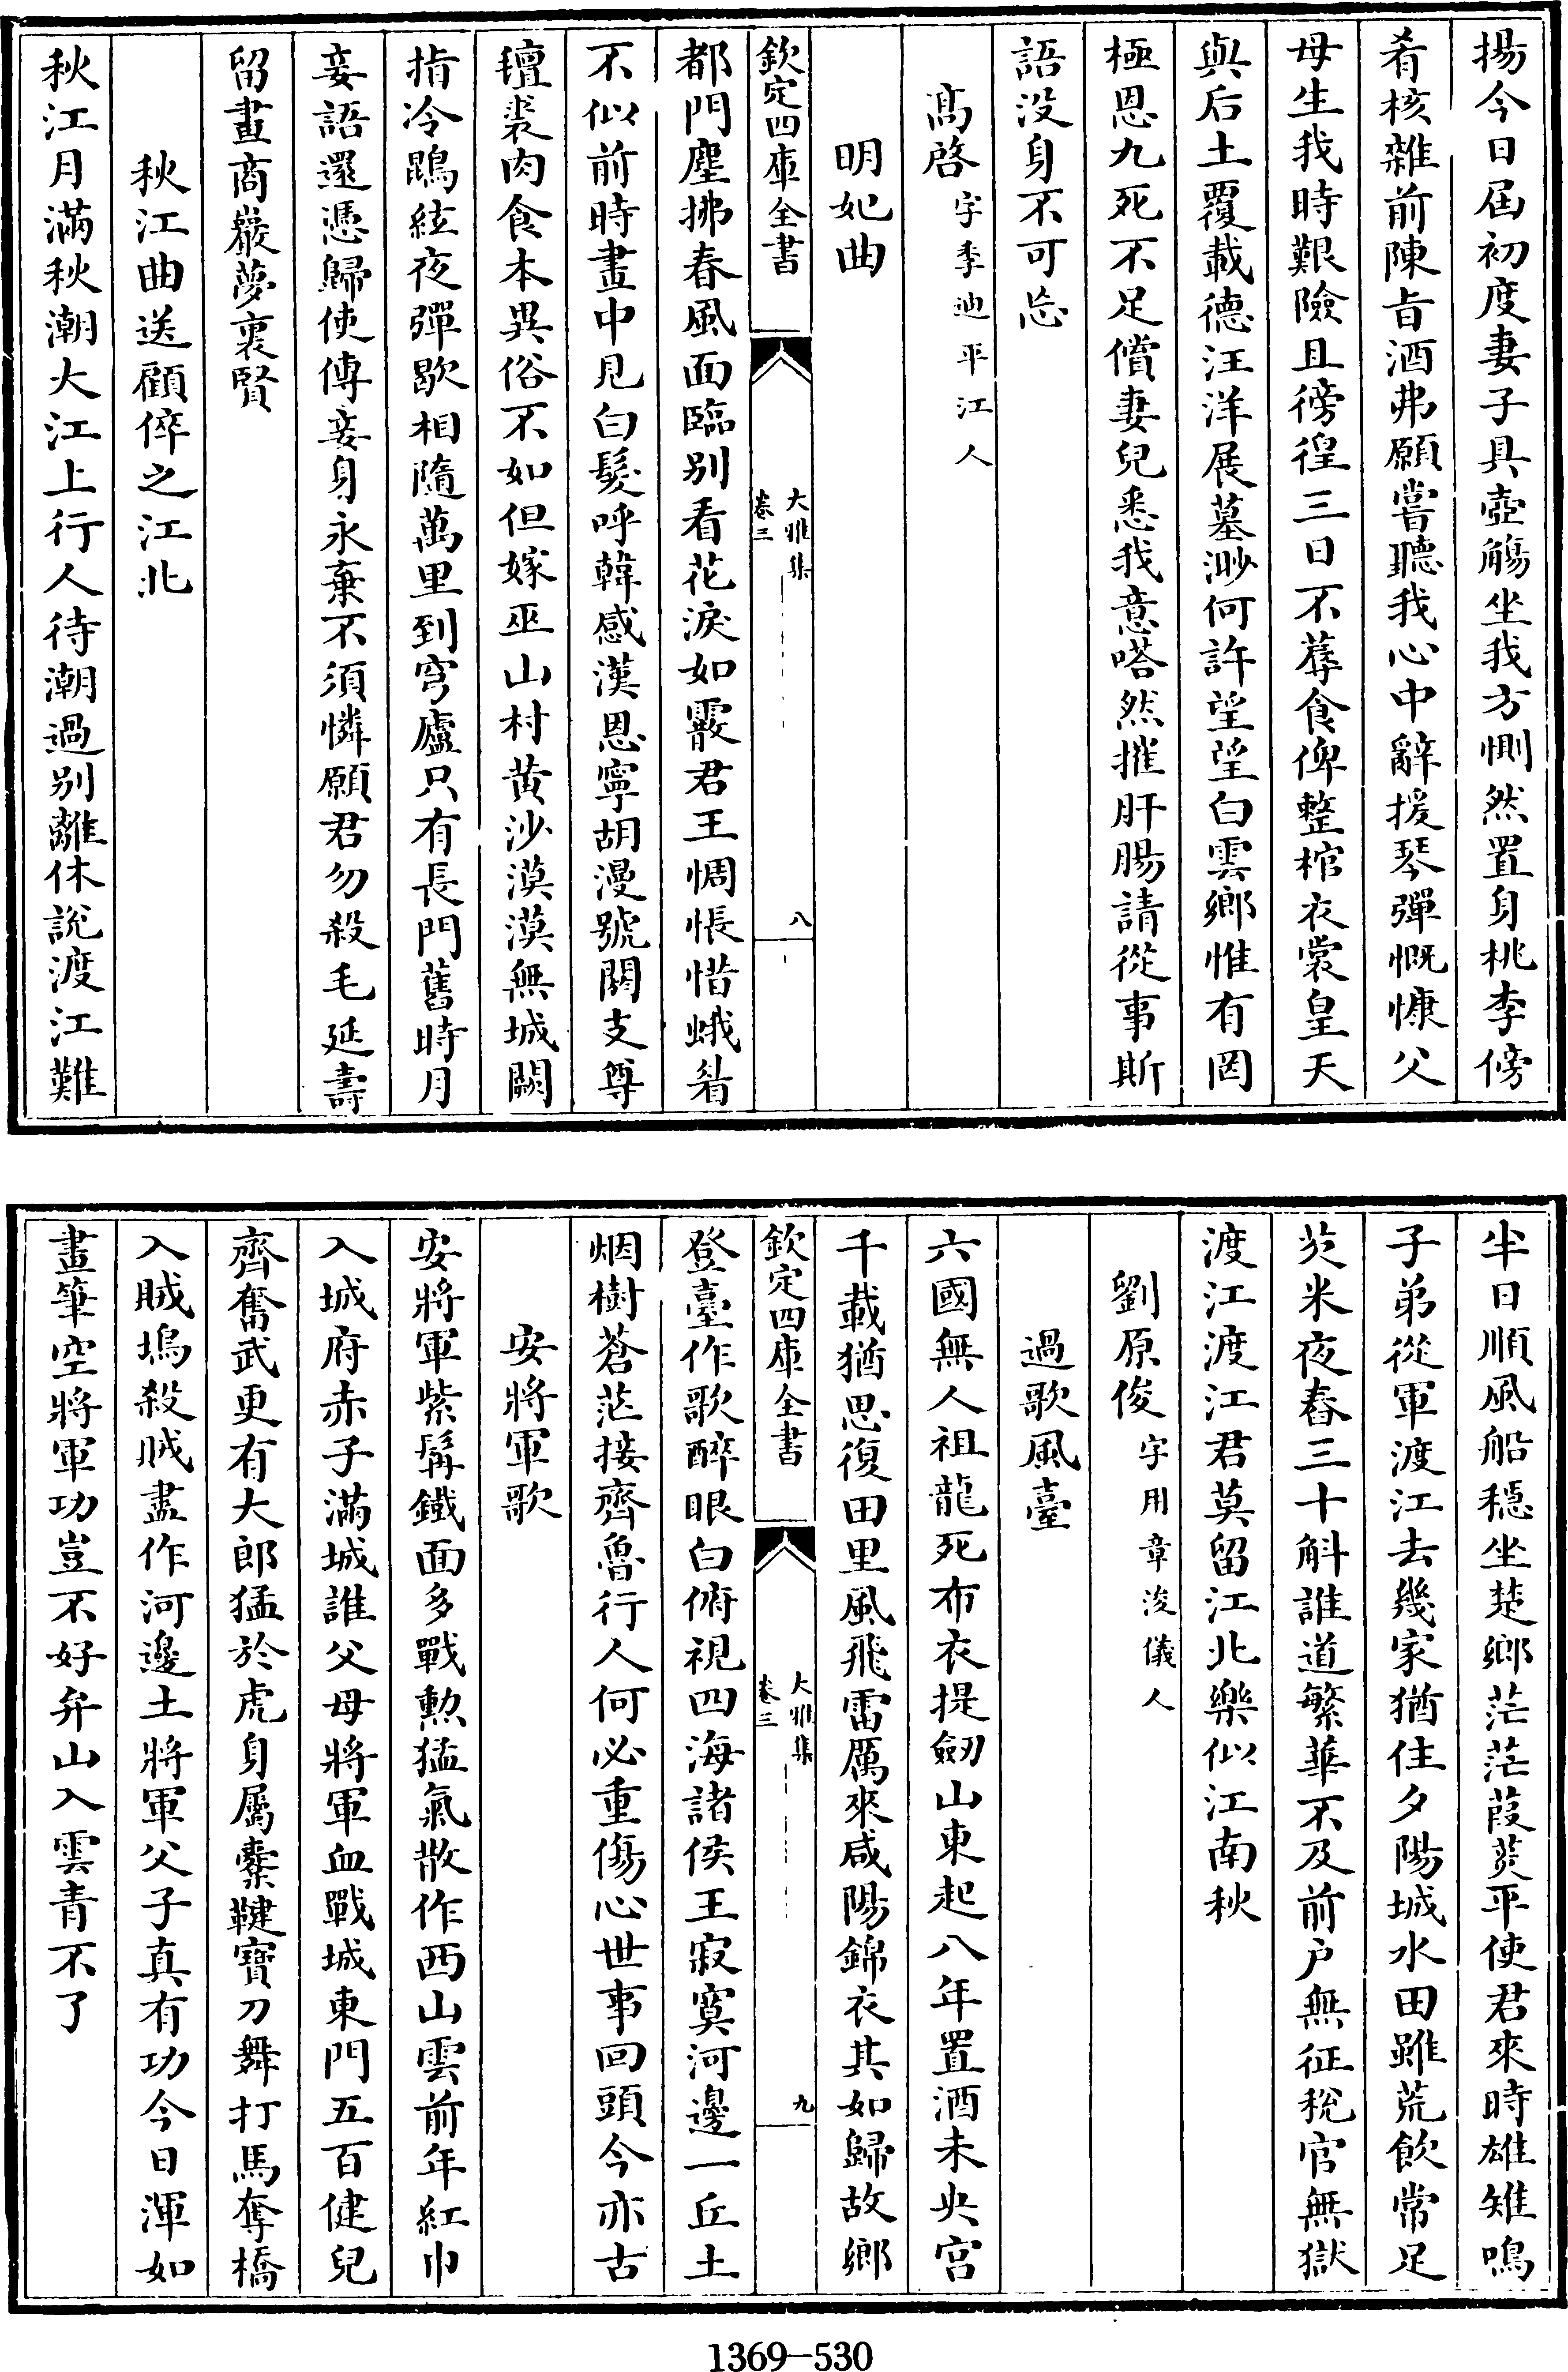 揚今日屆初度妻子具壺觴坐我方惻然置身桃李傍
肴核雜前陳旨酒弗願嘗聽我心中辭援琴彈慨慷父
母生我時艱險且徬徨三日不蓐食俾整棺衣裳皇天
與后土覆載德汪洋展墓渺何許望望白雲鄉惟有罔
極恩九死不足償妻兒悉我意嗒然摧肝腸請從事斯
語没身不可忘
髙啓字季迪平江人
明妃曲
都門塵拂春風面臨别看花淚如霰君王惆悵惜蛾眉
不似前時畫中見白髮呼韓感漢恩寧胡漫號閼支尊
氊裘肉食本異俗不如但嫁巫山村黄沙漠漠無城闕
指冷鵾絃夜彈歇相隨萬里到穹廬只有長門舊時月
妾語還憑歸使傳妾身永棄不須憐願君勿殺毛延壽
留畫商巖夢裏賢
秋江曲送顧倅之江北
秋江月滿秋潮大江上行人待潮過别離休説渡江難
欽定四庫全書
大雅集
卷三
八
半日順風船穩坐楚鄉茫茫葭菼平使君來時雄雉鳴
子弟從軍渡江去幾家猶住夕陽城水田雖荒飲常足
茨米夜舂三十斛誰道繁華不及前户無征税官無獄
渡江渡江君莫留江北樂似江南秋
劉原俊字用章浚儀人
過歌風臺
六國無人祖龍死布衣提劒山東起八年置酒未央宫
千載猶思復田里風飛雷厲來咸陽錦衣其如歸故鄉
登臺作歌醉眼白俯視四海諸侯王寂寞河邊一丘土
烟樹蒼茫接齊魯行人何必重傷心世事回頭今亦古
安將軍歌
安將軍紫髯鐵面多戰勲猛氣散作西山雲前年紅巾
入城府赤子滿城誰父母將軍血戰城東門五百健兒
齊奮武更有大郎猛於虎身屬櫜鞬寶刀舞打馬奪橋
入賊塢殺賊盡作河邊土將軍父子真有功今日渾如
畫筆空將軍功豈不好弁山入雲青不了
欽定四庫全書
大雅集
卷三
九
1369-530